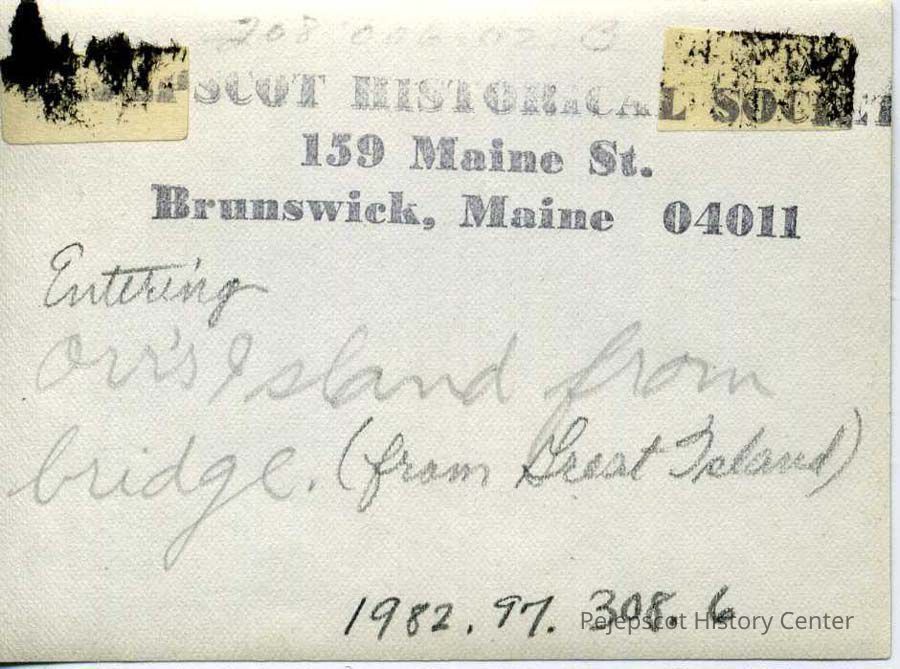 PSCOT HISTORICAL SOCIET
159 Maine St.
Brunswick, Maine 04011
Entering
Orr's Island from
bridge. (from Great Island)
1982.97.308.6
Pejepscot History Center